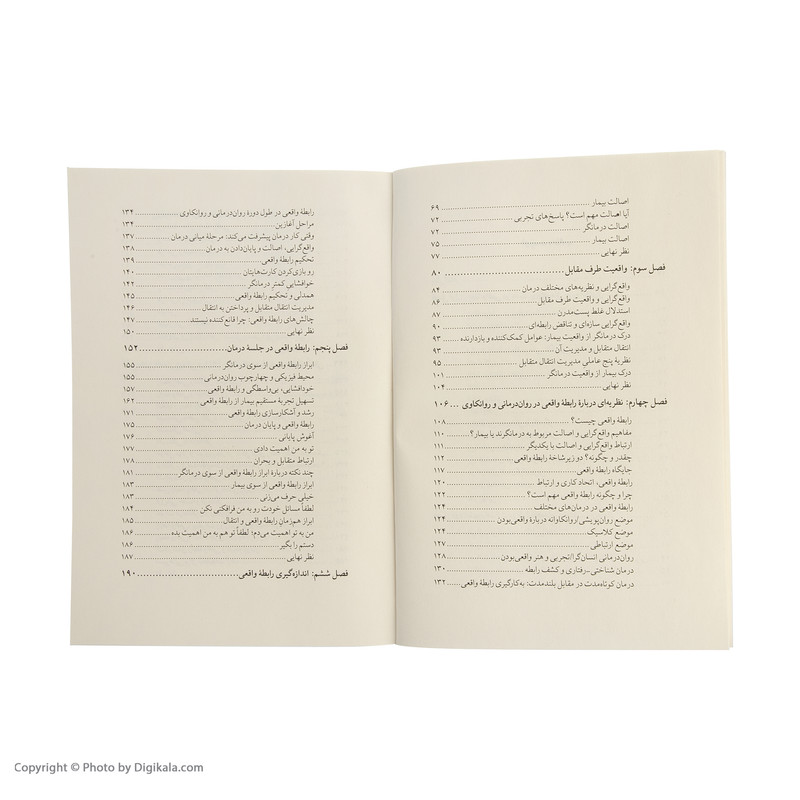 اصالت بیمار ... ۶۹
آیا اصالت مهم است؟ پاسخ‌های تجربی ... ۷۲
اصالت درمانگر ... ۷۲
اصالت بیمار ... ۷۵
نظر نهایی ... ۷۷
فصل سوم: واقعیت طرف مقابل ... ۸۰
واقع‌گرایی و نظریه‌های مختلف درمان ... ۸۴
واقع‌گرایی و واقعیت طرف مقابل ... ۸۶
استدلال غلط پست‌مدرن ... ۸۷
واقع‌گرایی سازه‌ای و تناقض رابطه‌ای ... ۹۰
درک درمانگر از واقعیت بیمار: عوامل کمک‌کننده و بازدارنده ... ۹۳
انتقال متقابل و مدیریت آن ... ۹۳
نظریهٔ پنج عاملی مدیریت انتقال متقابل ... ۹۵
درک بیمار از واقعیت درمانگر ... ۱۰۱
نظر نهایی ... ۱۰۴
فصل چهارم: نظریه‌ای دربارهٔ رابطهٔ واقعی در روان‌درمانی و روانکاوی ... ۱۰۶
رابطهٔ واقعی چیست؟ ... ۱۰۸
مفاهیم واقع‌گرایی و اصالت مربوط به درمانگرند یا بیمار؟ ... ۱۱۰
ارتباط واقع‌گرایی و اصالت با یکدیگر ... ۱۱۱
چقدر و چگونه؟ دو زیرشاخهٔ رابطهٔ واقعی ... ۱۱۲
جایگاه رابطهٔ واقعی ... ۱۱۷
رابطهٔ واقعی، اتحاد کاری و ارتباط ... ۱۲۰
چرا و چگونه رابطهٔ واقعی مهم است؟ ... ۱۲۲
رابطهٔ واقعی در درمان‌های مختلف ... ۱۲۴
موضع روان‌پویشی/روانکاوانه دربارهٔ واقعی‌بودن ... ۱۲۴
موضع کلاسیک ... ۱۲۴
موضع ارتباطی ... ۱۲۷
روان‌درمانی انسان‌گرا/تجربی و هنر واقعی‌بودن ... ۱۲۸
درمان شناختی-رفتاری و کشف رابطه ... ۱۳۰
درمان کوتاه‌مدت در مقابل بلندمدت: به‌کارگیری رابطهٔ واقعی ... ۱۳۲
رابطهٔ واقعی در طول دورهٔ روان‌درمانی و روانکاوی ... ۱۳۴
مراحل آغازین ... ۱۳۴
وقتی کار درمان پیشرفت می‌کند: مرحلهٔ میانی درمان ... ۱۳۷
واقع‌گرایی، اصالت و پایان‌دادن به درمان ... ۱۳۸
تحکیم رابطهٔ واقعی ... ۱۳۹
رو بازی‌کردن کارت‌هایتان ... ۱۴۰
خوافشایی کمتر درمانگر ... ۱۴۲
همدلی و تحکیم رابطهٔ واقعی ... ۱۴۵
مدیریت انتقال متقابل و پرداختن به انتقال ... ۱۴۶
چالش‌های رابطهٔ واقعی: چرا قانع‌کننده نیستند ... ۱۴۷
نظر نهایی ... ۱۵۰
فصل پنجم: رابطهٔ واقعی در جلسهٔ درمان ... ۱۵۲
ابراز رابطهٔ واقعی از سوی درمانگر ... ۱۵۵
محیط فیزیکی و چهارچوب روان‌درمانی ... ۱۵۵
خودافشایی، بی‌واسطگی و رابطهٔ واقعی ... ۱۵۷
تسهیل تجربهٔ مستقیم بیمار از رابطهٔ واقعی ... ۱۶۲
رشد و آشکارسازی رابطهٔ واقعی ... ۱۷۱
رابطهٔ واقعی و پایان درمان ... ۱۷۵
آغوش پایانی ... ۱۷۶
تو به من اهمیت دادی ... ۱۷۷
ارتباط متقابل و بحران ... ۱۷۸
چند نکته دربارهٔ ابراز رابطهٔ واقعی از سوی درمانگر ... ۱۸۱
ابراز رابطهٔ واقعی از سوی بیمار ... ۱۸۳
خیلی حرف می‌زنی ... ۱۸۳
لطفاً مسائل خودت رو به من فرافکنی نکن ... ۱۸۴
ابراز هم‌زمان رابطهٔ واقعی و انتقال ... ۱۸۵
من به تو اهمیت می‌دم؛ لطفاً تو هم به من اهمیت بده ... ۱۸۶
دستم را بگیر ... ۱۸۶
نظر نهایی ... ۱۸۷
فصل ششم: اندازه‌گیری رابطهٔ واقعی ... ۱۹۰
Copyright © Photo by Digikala.com